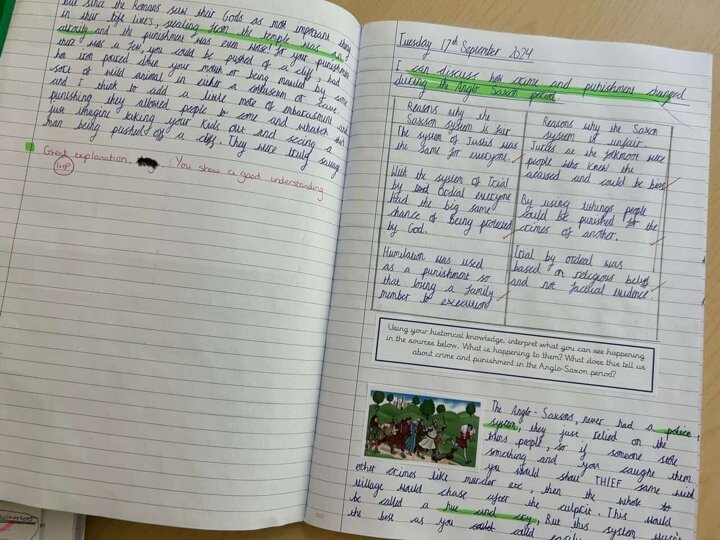 but since the Romans saw their Gods as most important thing
in their life lines, stealing from the temple was an
atrocity and the punishment was even worse! So your punishment
there was a few, you could be pushed of a cliff, had
hot iron poured down your mouth or being mauled by some
sort of wild animal in either a colluseum or cave.
and I think to add a little more of embarrasment and
punishing they allowed people to come and watch.
Just imagine taking your kids out and seeing a
man being pushed of a cliff. They were truly savage
Great explanation, You show a good understanding
1HP
Tuesday 17th September 2024
I can discuss how crime and punishment changed
during the Anglo Saxon period
Reasons why the
Saxson system is fair
The system of Justis was
the same for everyone.
With the system of Trial
by Ordial everyone
had the big same
chance of being protected
by God.
Humilation was used
as a punishment so
that losing a family
member to execution
Reasons why the Saxon
system is unfair.
Juries at the folkmoot were
people who knew the
accused and could be bias
By using tithings people
could be punished for the
crimes of another.
Trial by ordeal was
based on religious belief
and not factual evidence.
Using your historical knowledge, interpret what you can see happening
in the sources below. What is happening to them? What does this tell us
about crime and punishment in the Anglo-Saxon period?
The Anglo-Saxons, never had a police
system, they just relied on the
towns people, so if someone stole
something and you caught them
you would shout THIEF same with
other crimes like murder exc, then the whole
village would chase after the culprit. This would
be called a hue and cry. But this system wasn't
the best as you could called easily